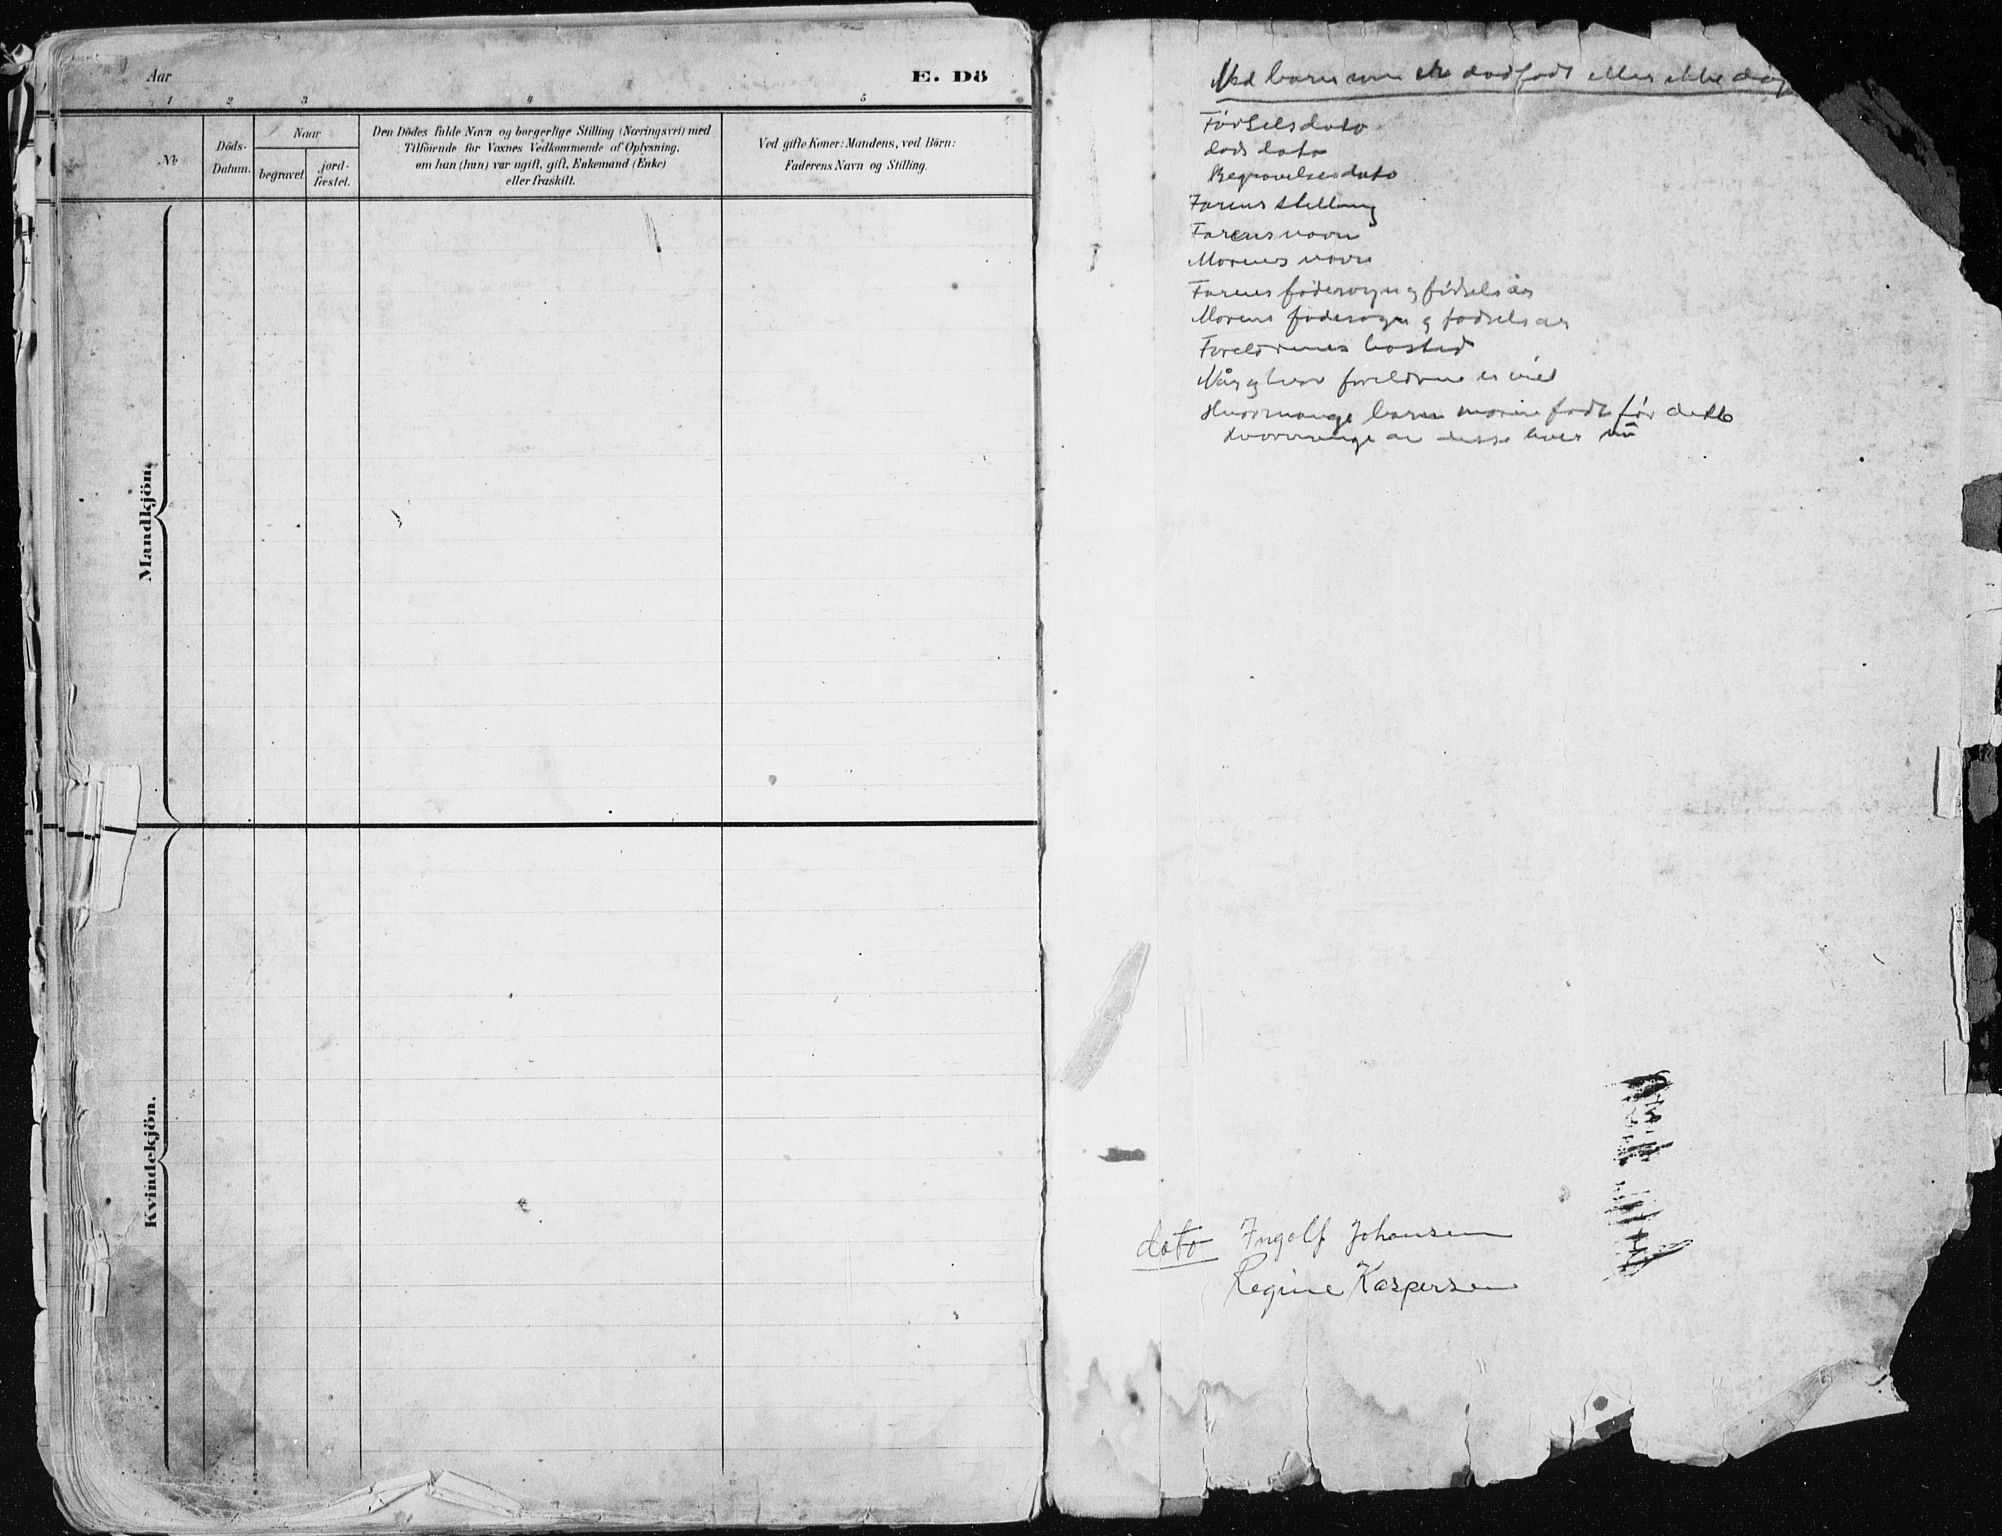 Aar
E. Dö
1 2 3 4 5
No
Döds-
Datum.
Naar
begravet
jord-
fæstet.
Den Dödes fulde Navn og borgerlige Stilling (Næringsvei) med
Tilföiende for Voxnes Vedkommende af Oplysning,
om han (hun) var ugift, gift, Enkemand (Enke)
eller fraskilt.
Ved gifte Koner: Mandens, ved Börn:
Faderens Navn og Stilling.
Mandkjön.
Kvindekjön.
Ved barn som er dødfødt eller ikke
Fødselsdato
døds dato
Begravelsesdato
Farens stilling
Farens navn
Morens navn
Farens fødesogn og fødselsår
Morens fødesogn og fødselsår
Foreldrenes bosted
Når og hvor foreldrene er viet
Hvormange barn moren født før dette
Hvormange av disse lever nu
dato Ingolf Johansen
Regine Kaspersen